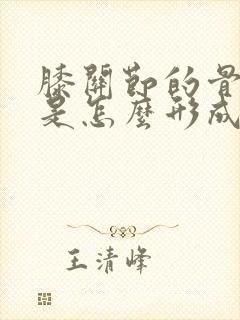 膝關節的骨
是怎麼形成
王清峰